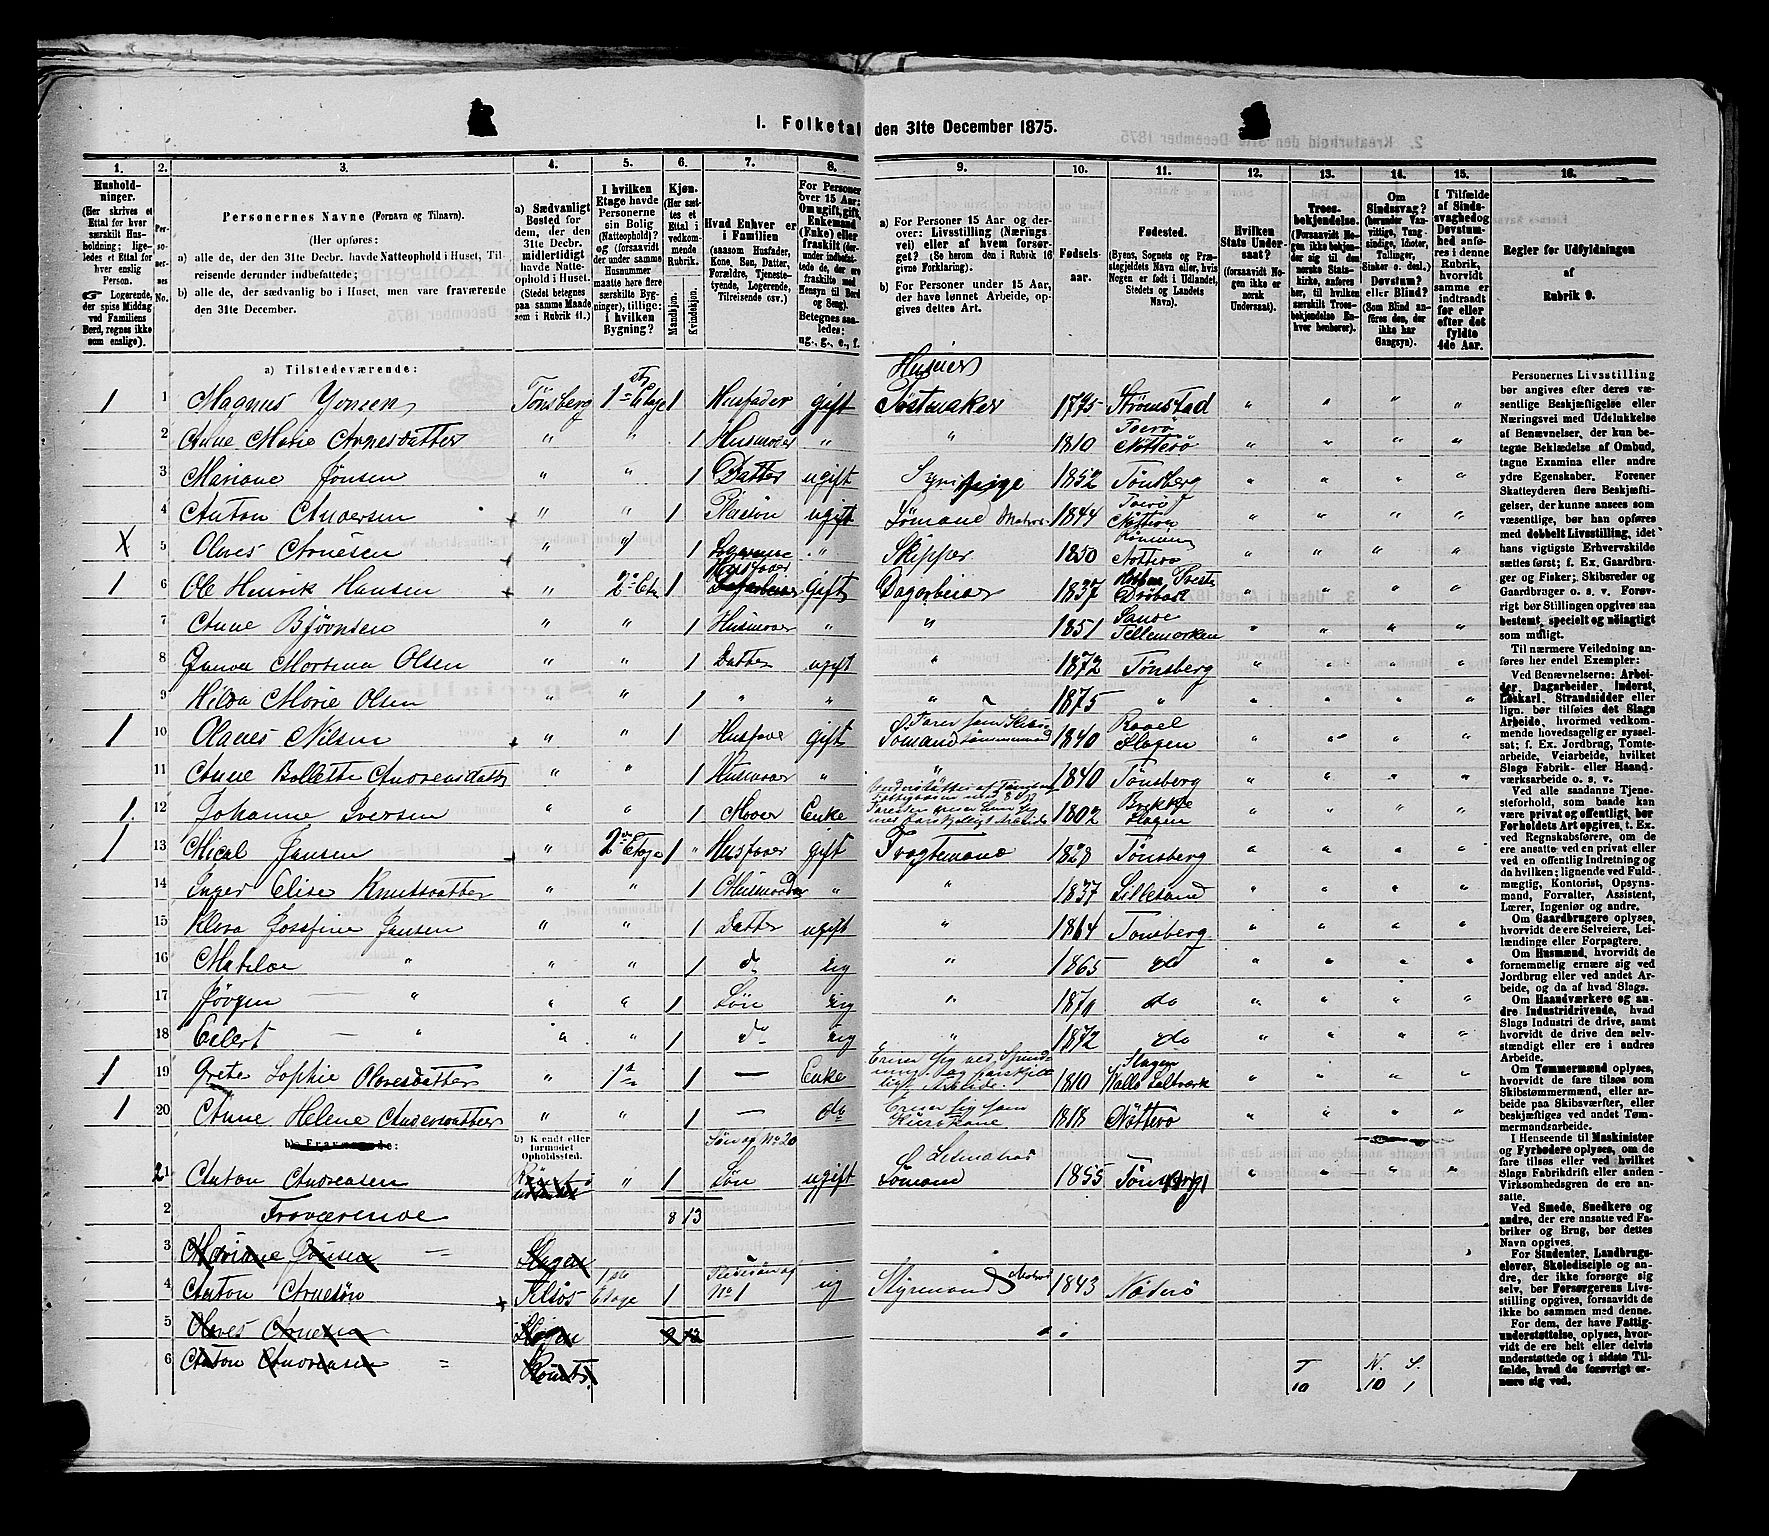 I. Folketal den 31te December 1875.
1. 2. 3. 4. 5. 6. 7. 8. 9. 10. 11. 12. 13. 14. 15. 16.
Husholdninger. (Her skrives et Ettal for hver særskilt Husholdning; ligeledes et Ettal for hver enslig Person. Logerende, der spise Middag ved Familiens Bord, regnes ikke som enslige).
Personernes No.
Personernes Navne (Fornavn og Tilnavn).
(Her opføres:
a) alle de, der den 31te Decbr. havde Natteophold i Huset, Tilreisende derunder indbefattede;
b) alle de, der sædvanlig bo i Huset, men vare fraværende den 31te December.
a) Sædvanligt Bosted for dem, der den 31te Decbr. midlertidigt havde Natteophold i Huset. (Stedet betegnes paa samme Maade som i Rubrik 11.)
I hvilken Etage havde Personerne sin Bolig (Natteophold)? og (forsaavidt der under samme Husnummer maatte høre flere særskilte Bygninger), tillige: i hvilken Bygning?
Kjøn. (Her sættes et Ettal i vedkommende Rubrik.
Mandkjøn. Kvindekjøn.
Hvad Enhver er i Familien (saasom Husfader, Kone, Søn, Datter, Forældre, Tjenestetyende, Logerende, Tilreisende osv.)
For Personer over 15 Aar: Om ugift, gift, Enkemand (Enke) eller fraskilt
Betegnes saaledes: ug., g., e., f.
a) For Personer 15 Aar og derover: Livsstilling (Næringsvei) eller af hvem forsørget? (Se herom den i Rubrik 16 givne Forklaring).
b) For Personer under 15 Aar, der have lønnet Arbeide, opgives dettes Art.
Fødselsaar.
Fødested. (Byens, Sognets og Præstegjeldets Navn eller, hvis Nogen er født i Udlandet, Stedets og Landets Navn).
Hvilken Stats Undersaat? (forsaavidt Nogen ikke er norsk Undersaat).
Troesbekjendelse. (Forsaavidt Nogen ikke bekjender sig til den norske Statskirke, anføres her, til hvilken særskilt Troesbekjendelse Enhver henhører).
Om Sindssvag? (herunder Vanvittige, Tungsindige, Idioter, Tullinger, Sinker o. desl.) Døvstum? eller Blind? (Som Blind anføres den, der ikke har Gangsyn).
I Tilfælde af Sindssvaghed og Døvstumhed anføres i denne Rubrik, hvorvidt samme er indtraadt før eller efter det fyldte 4de Aar.
Regler for Udfyldningen af Rubrik 9.
a) Tilstedeværende:
Huseier
1 1 Magnus Jonsen Tønsberg 1ste Etage 1 Husfader gift Tøstmaker 1775 Strømstad
2 Anne Marie Arnesdatter " " 1 Husmoer " " 1810 Nøtterø
3 Mariane Jonsen " " 1 Datter ugift Sypige 1852 Tønsberg
4 Anton Andersen " " 1 Pleiesøn ugift Sømand Matros 1844 Nøtterø
X 5 Olaves Arnesen " " 1 Logerende " Skipper 1850 Nøtterø
1 6 Ole Henrik Hansen " 2 Etg 1 Husfaer gift Dagarbeier 1837 Drøbak
7 Anne Bjørnsen " " 1 Husmoer " " 1851 Sande Tellemarken
8 Mortina Olsen " " 1 Datter ugift " 1872 Tønsberg
9 Hilda Marie Olsen " " 1 " " " 1875 "
1 10 Olaves Nilsen " " 1 Husfaer gift Sømand Farer som Skibstømmermand 1840 Slagen
11 Anne Bollette Andreasdatter " " 1 Husmoer " " 1840 Tønsberg
1. 12 Johanne Iversen " " 1 Moer Enke 1802 Slagen
1 13 Mical Jansen " 2 Etage 1 " Husfaer gift Fragtemand 1828 Tønsberg
14 Inger Elise Knutsdatter " " 1 Husmoder " " 1837 Lillesand
15 Klara Josefine Jansen " " 1 Datter ugift " 1864 Tønsberg
16 Matilde " " " 1 do ug " 1865 do
17 Jørgen — " " " 1 Søn ug " 1870 do
18 Eilert — " " " 1 do ug " 1872 do
1 19 Grete Sophie Olavesdatter " 1ste 1 — Enke 1810 Slagen Vallø Saltværk
1 20 Anne Helene Andersdatter " " 1 — do Ernær sig som 1818 Nøtterø
b) Fraværende:
b) Kjendt eller formodet Opholdssted.
Søn af No 20
21 Anton Andreasen " 1 Søn ugift Sømand Letmatros 1855 Tønsberg
2 Fraværende 8 13
3 Mariane Jonsen — Slagen
4 Anton Arnesøn 1ste Etage 1 Pleiesøn af No 1 ug Styrmand Matros 1843 Nøterø
5 Olaves Arnesen Slagen
6 Anton Andreasen "
T N. S.
10 10 1
Personernes Livsstilling bør angives efter deres væsentlige Beskjæftigelse eller Næringsvei med Udelukkelse af Benævnelser, der kun betegne Beklædelse af Ombud, tagne Examina eller andre ydre Egenskaber. Forener Skatteyderen flere Beskjæftigelser, der kunne ansees som væsentlige, bør han opføres med dobbelt Livsstilling, idet hans vigtigste Erhvervskilde sættes først; f. Ex. Gaardbruger og Fisker; Skibsreder og Gaardbruger o. s. v. Forøvrigt bør Stillingen opgives saa bestemt, specielt og nøiagtigt som muligt.
Til nærmere Veiledning anføres her endel Exempler:
Ved Benævnelserne: Arbeider, Dagarbeider, Inderst, Løskarl, Strandsidder eller lign. bør tilføies det Slags Arbeide, hvormed vedkommende hovedsagelig er sysselsat; f. Ex. Jordbrug, Tomtearbeide, Veiarbeide, hvilket Slags Fabrik- eller Haandværksarbeide o. s. v.
Ved alle saadanne Tjenesteforhold, som baade kan være private og offentlige, bør Forholdets Art opgives, t. Ex. ved Regnskabsførere, om de ere ansatte ved en privat eller ved en offentlig Indretning og da hvilken; lignende ved Fuldmægtig, Kontorist, Opsynsmand, Forvalter, Assistent, Lærer, Ingeniør og andre.
Om Gaardbrugere oplyses, hvorvidt de ere Selveiere, Leilændinge eller Forpagtere.
Om Husmænd, hvorvidt de fornemmelig ernære sig ved Jordbrug eller ved andet Arbeide, og da af hvad Slags.
Om Haandværkere og andre Industridrivende, hvad Slags Industri de drive, samt hvorvidt de drive den selvstændigt eller ere i andres Arbeide.
Om Tømmermænd oplyses, hvorvidt de fare tilsøs som Skibstømmermænd, eller arbeide paa Skibsværfter, eller beskjæftiges ved andet Tømmermandsarbeide.
I Henseende til Maskinister og Fyrbødere oplyses, om de fare tilsøs eller ved hvilket Slags Fabrikdrift eller anden Virksomhedsgren de ere ansatte.
Ved Smede, Snedkere og andre, der ere ansatte ved Fabriker og Brug, bør dettes Navn opgives.
For Studenter, Landbrugselever, Skoledisciple og andre, der ikke forsørge sig selv, bør Forsørgerens Livsstilling opgives, forsaavidt de ikke bo sammen med denne.
For dem, der have Fattigunderstøttelse, oplyses, hvorvidt de ere helt eller delvis understøttede og i sidste Tilfælde, hvad de forøvrigt ernære sig ved.